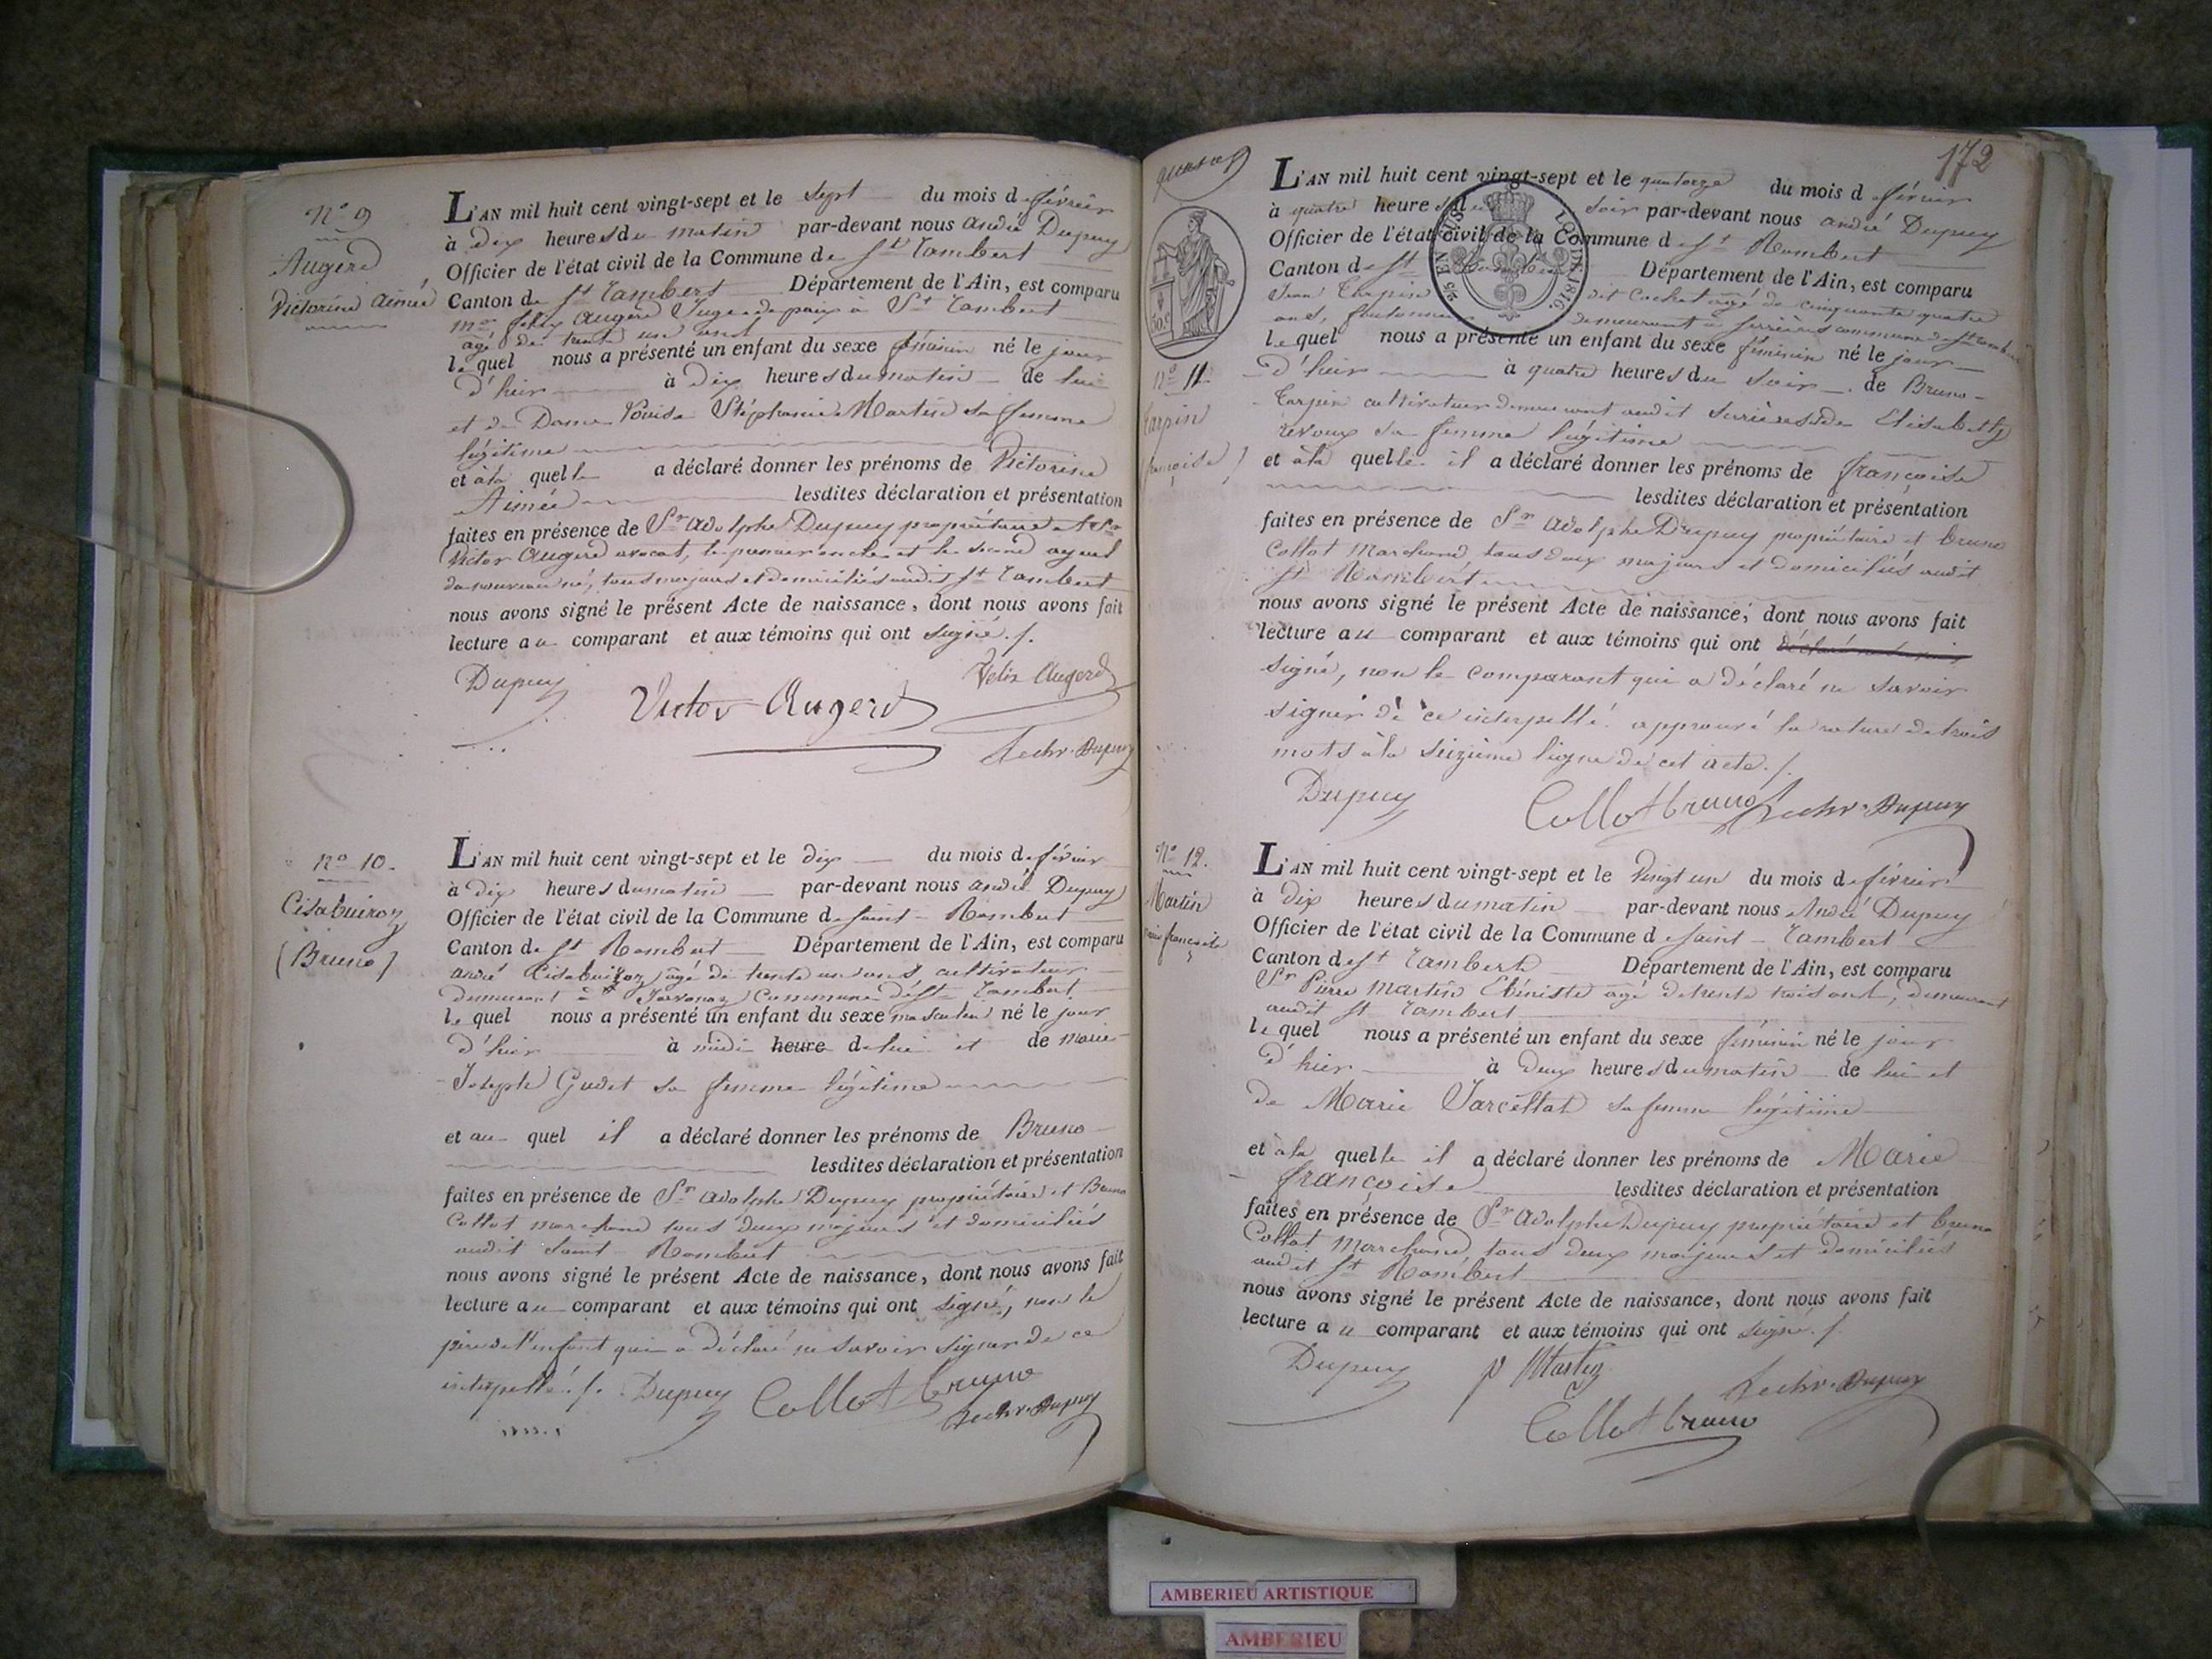 N° 9
Augerd
Victorine Aimée
L'AN mil huit cent vingt-sept et le sept du mois de février
à dix heures du matin par-devant nous andré Dupuy
Officier de l'état civil de la Commune de St Rambert
Canton de St Rambert Département de l'Ain, est comparu
Mr felix Augerd Juge de paix à St Rambert
agé de trente un ans
lequel nous a présenté un enfant du sexe féminin né le jour
d'hier à dix heures du matin de lui
et de Dame Louise Stéphanie Martin sa femme
légitime
et à la quelle a déclaré donner les prénoms de Victorine
Aimée lesdites déclaration et présentation
faites en présence de Sr adolphe Dupuy propriétaire et Sr
Victor Augerd avocat, le premier oncle et le second ayeul
du nouveau né, tous majeurs et domiciliés audit St Rambert
nous avons signé le présent Acte de naissance, dont nous avons fait
lecture au comparant et aux témoins qui ont signé ./.
Dupuy Victor Augerd Felix Augerd
Dupuy
N° 10.
(Bruno)
L'AN mil huit cent vingt-sept et le dix du mois de février
à dix heures du matin par-devant nous andré Dupuy
Officier de l'état civil de la Commune de Saint-Rambert
Canton de St Rambert Département de l'Ain, est comparu
andré agé de trente un ans cultivateur
demeurant à Commune de St Rambert
lequel nous a présenté un enfant du sexe masculin né le jour
d'hier à midi heure de lui et de marie
Joseph Gudet sa femme légitime
et au quel il a déclaré donner les prénoms de Bruno
lesdites déclaration et présentation
faites en présence de Sr adolphe Dupuy propriétaire et Bruno
Collot marchand tous deux majeurs et domiciliés
audit Saint-Rambert
nous avons signé le présent Acte de naissance, dont nous avons fait
lecture au comparant et aux témoins qui ont signé, non le
père de l'enfant qui a déclaré ne savoir signer de ce
interpellé ./. Dupuy Collot bruno
Dupuy
172
N° 11.
Tarpin
françoise
L'AN mil huit cent vingt-sept et le quatorze du mois de février
à quatre heures du soir par-devant nous andré Dupuy
Officier de l'état civil de la Commune de St Rambert
Canton de St Rambert Département de l'Ain, est comparu
Jean Tarpin dit Cochet agé de cinquante quatre
ans, demeurant à Serrières commune de St Rambert
lequel nous a présenté un enfant du sexe féminin né le jour
d'hier à quatre heures du soir de Bruno
Tarpin cultivateur demeurant audit Serrières et de Elisabeth
revoux sa femme légitime
et à la quelle il a déclaré donner les prénoms de françoise
lesdites déclaration et présentation
faites en présence de Sr adolphe Dupuy propriétaire et bruno
Collot Marchand tous deux majeurs et domiciliés audit
St Rambert
nous avons signé le présent Acte de naissance, dont nous avons fait
lecture au comparant et aux témoins qui ont
signé, non le comparant qui a déclaré ne savoir
signer de ce interpellé. approuvé la rature de trois
mots à la seizième ligne de cet acte ./.
Dupuy Collot bruno Dupuy
N° 12.
Martin
Marie françoise
L'AN mil huit cent vingt-sept et le vingt un du mois de février
à dix heures du matin par-devant nous André Dupuy
Officier de l'état civil de la Commune de Saint-Rambert
Canton de St Rambert Département de l'Ain, est comparu
Sr Pierre Martin Ebéniste agé de trente trois ans, demeurant
audit St Rambert
lequel nous a présenté un enfant du sexe féminin né le jour
d'hier à deux heures du matin de lui et
de Marie Jarcellat sa femme légitime
et à la quelle il a déclaré donner les prénoms de Marie
françoise lesdites déclaration et présentation
faites en présence de Sr adolphe Dupuy propriétaire et bruno
Collot Marchand, tous deux majeurs et domiciliés
audit St Rambert
nous avons signé le présent Acte de naissance, dont nous avons fait
lecture au comparant et aux témoins qui ont signé ./.
Dupuy P Martin Dupuy
Collot bruno
AMBERIEU ARTISTIQUE
AMBERIEU